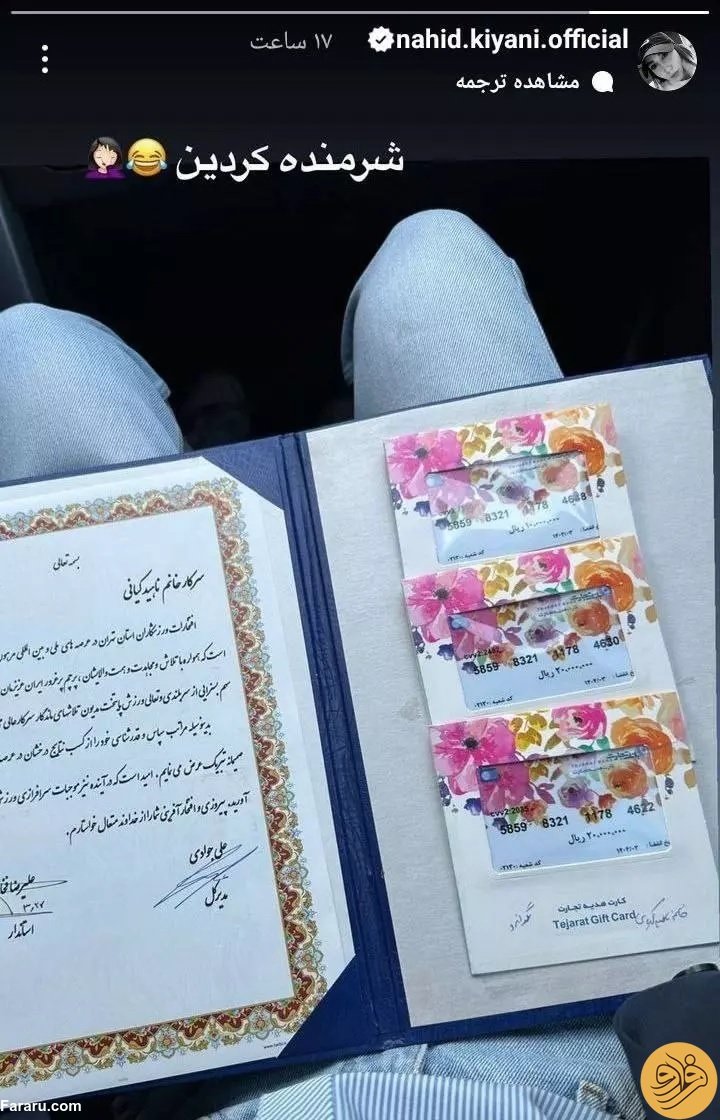 nahid.kiyani.official
۱۷ ساعت
مشاهده ترجمه
شرمنده کردین 😂🤦🏻‍♀️
بسمه تعالی
سرکار خانم ناهید کیانی
افتخارات ورزشکاران استان تهران در عرصه های ملی و بین المللی
است که همواره با تلاش و مجاهدت و همت والایشان، پرچم پرغرور ایران عزیزمان
سهم بسزایی از سربلندی و تعالی ورزش پایتخت مدیون تلاشهای ماندگار سرکارعالی
بدینوسیله مراتب سپاس و قدرشناسی خود را از کسب نتایج درخشان در عرصه
صمیمانه تبریک عرض می نمایم. امید است که در آینده نیز موجبات سرافرازی ورزش
آورید. پیروزی و افتخار آفرینی شما را از خداوند متعال خواستارم.
علی جوادی
مدیرکل
علیرضا
استاندار
5859 8321 1178 4638
۱۰,۰۰۰,۰۰۰ ریال
۱۴۰۴/۰۳
کد شعبه : ۰۲۱۳۰
5859 8321 1178 4630
۲۰,۰۰۰,۰۰۰ ریال
۱۴۰۴/۰۳
کد شعبه : ۰۲۱۳۰
5859 8321 1178 4622
۲۰,۰۰۰,۰۰۰ ریال
۱۴۰۴/۰۳
کد شعبه : ۰۲۱۳۰
کارت هدیه تجارت
Tejarat Gift Card
فرارو
Fararu.com